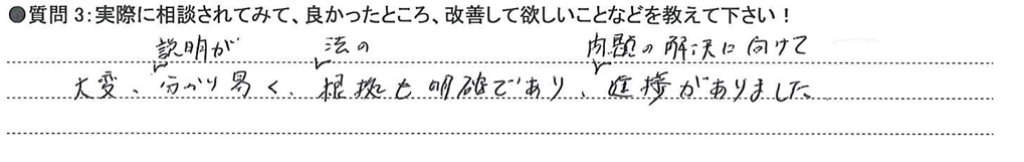 ●質問 3:実際に相談されてみて、良かったところ、改善して欲しいことなどを教えて下さい！
説明が 法の 問題の解決に向けて
大変、分かり易く、根拠も明確であり、進捗がありました